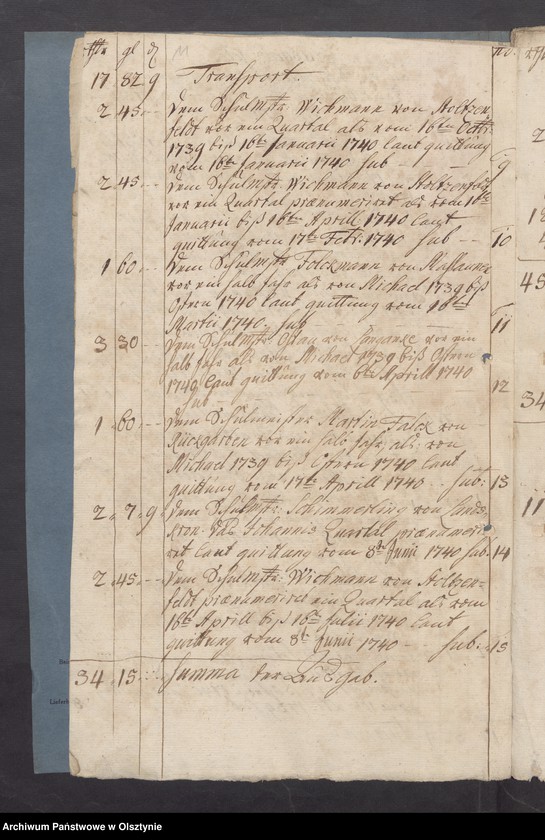 rthr gl ₰ no.
17 82 9 Transport.
2 45 Dem Schulmstr. Wichmann von Stoltzen-
feldt vor ein Quartal als vom 16ten Octb:
1739 biß 16t Januarii 1740 laut quittung
vom 16t Januarii 1740 sub 9
2 45 Dem Schulmstr. Wichmann von Stoltzenfeldt
vor ein Quartal praenumeriret als vom 16t
Januarii biß 16ten Aprill 1740 laut
quittung vom 17t Febr: 1740 sub 10
1 60 Dem Schulmstr Folckmann von
vor ein halb Jahr als von Michael 1739 biß
Ostern 1740 laut quittung vom
Martii 1740. sub 11
3 30 Dem Schulmstr. von vor ein
halb Jahr als von Michael 1739 biß Ostern
1740 laut quittung vom 6t Aprill 1740
sub 12
1 60 Dem Schulmeister Martin Falck von
Rückgarben vor ein halb Jahr, als: von
Michael 1739 biß Ostern 1740 laut
quittung vom 17t Aprill 1740 sub: 13
2 7 9 Dem Schulmstr: Schimmerling von Lands-
kron das Johannis Quartal praenumeri-
ret laut quittung vom 8t Junii 1740 sub. 14
2 45 Dem Schulmstr: Wichmann von Stoltzen-
feldt praenumeriret ein Quartal als vom
16t Aprill biß 16t Julii 1740 laut
quittung vom 8t Junii 1740 sub. 15
34 15 Summa der Außgab.
Archiwum Państwowe w Olsztynie